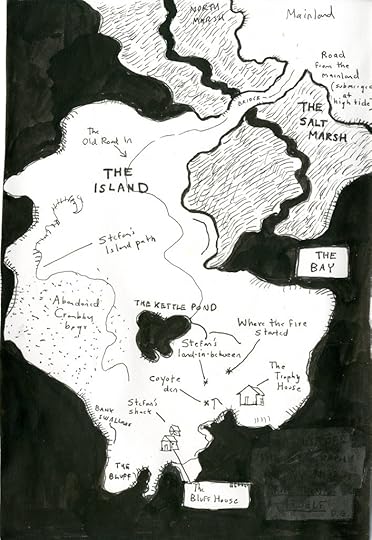 NORTH
MARSH
Mainland
Road
from the
mainland
(submerged
at
high tide)
BRIDGE
THE
SALT
MARSH
The
Old Road In
THE
ISLAND
Stefan's
Island path
THE
BAY
Abandoned
Cranberry
bogs
THE KETTLE POND
Where the fire
started
Stefan's
land-in-between
The
Trophy
House
Coyote
den
Stefan's
shack
BANK
SWALLOWS
THE
BLUFF
The
Bluff House